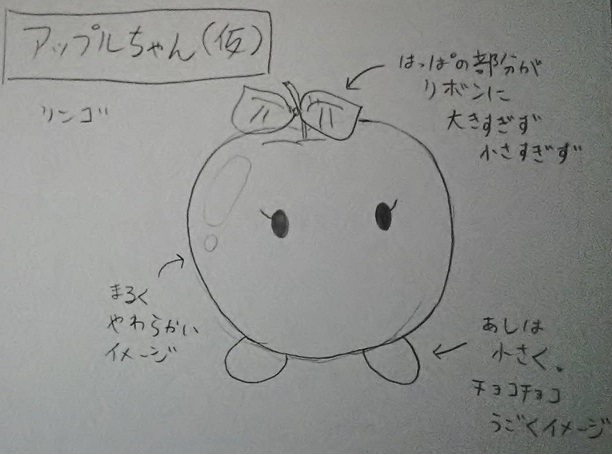 アップルちゃん(仮)
リンゴ
はっぱの部分が
リボンに
大きすぎず
小さすぎず
まるく
やわらかい
イメージ
あしは
小さく。
チョコチョコ
うごくイメージ